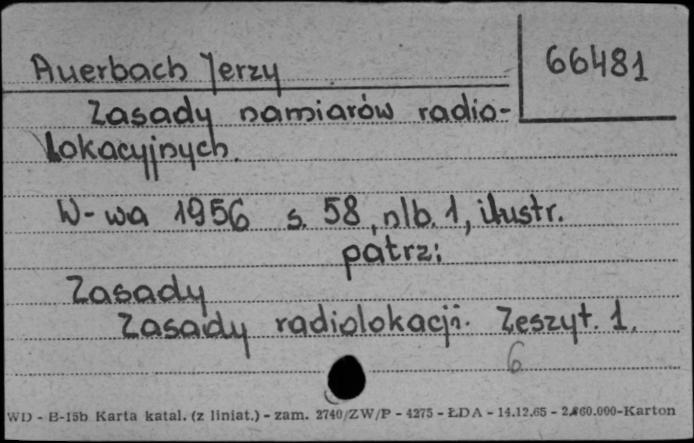 Auerbach Jerzy
66481
Zasady namiarów radio-
lokacyjnych.
W-wa 1956 s. 58, nlb. 1, ilustr.
patrz:
Zasady
Zasady radiolokacji. Zeszyt. 1.
6
WD - B-15b Karta katal. (z liniat.) - zam. 2740/ZW/P - 4275 - ŁDA - 14.12.65 - 2.860.000-Karton